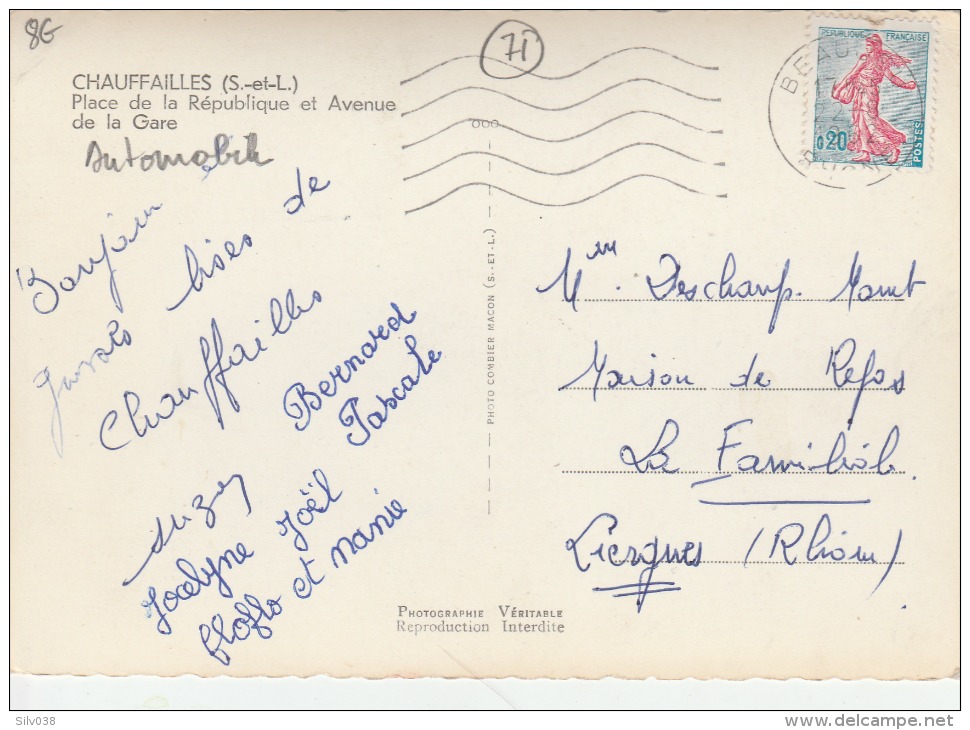 8G
71
CHAUFFAILLES (S.-et-L.)
Place de la République et Avenue
de la Gare
Automobile
Bonjour
grosses bises de
Chauffailles
Bernard
Pascale
Suzy
Jocelyne Joël
floflo et nanie
REPUBLIQUE FRANÇAISE
0,20
POSTES
PHOTO COMBIER MACON (S.-ET-L.)
Mme Deschamp
Maison de Repos
La Familiale
Liergues (Rhône)
PHOTOGRAPHIE VÉRITABLE
Reproduction Interdite
Silv038
www.delcampe.net